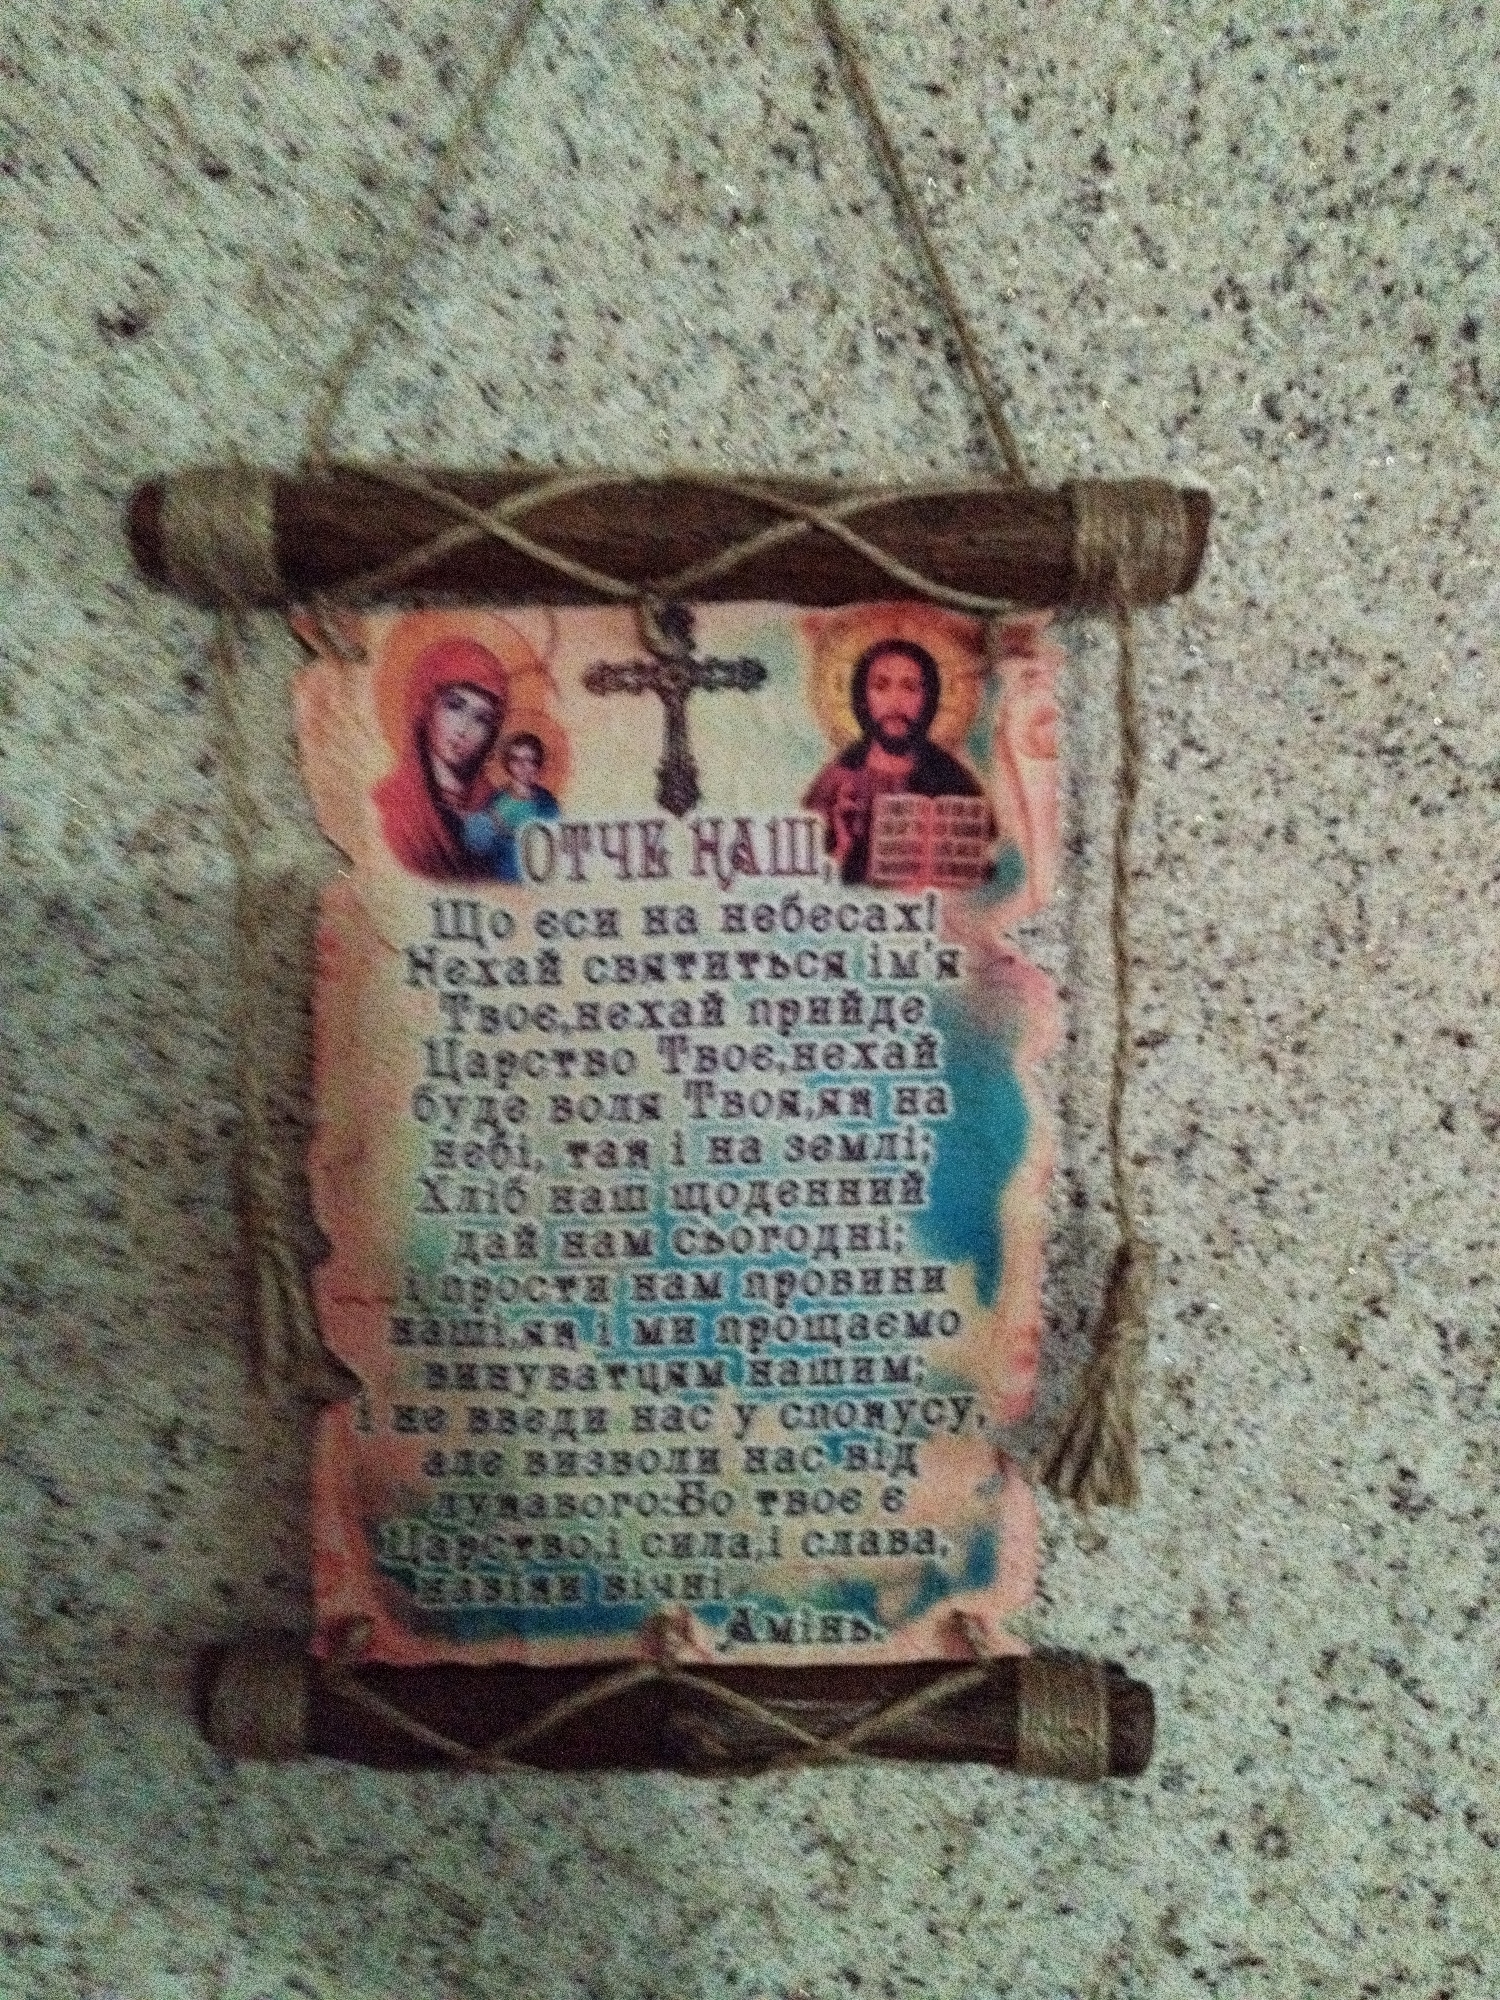 ОТЧЕ НАШ,
Що єси на небесах!
Нехай святиться ім'я
Твоє,нехай прийде
Царство Твоє,нехай
буде воля Твоя,як на
небі, так і на землі;
Хліб наш щоденний
дай нам сьогодні;
і прости нам провини
наші,як і ми прощаємо
винуватцям нашим;
і не введи нас у спокусу,
але визволи нас від
лукавого.Бо твоє є
Царство,і сила,і слава,
навіки вічні.
Амінь.